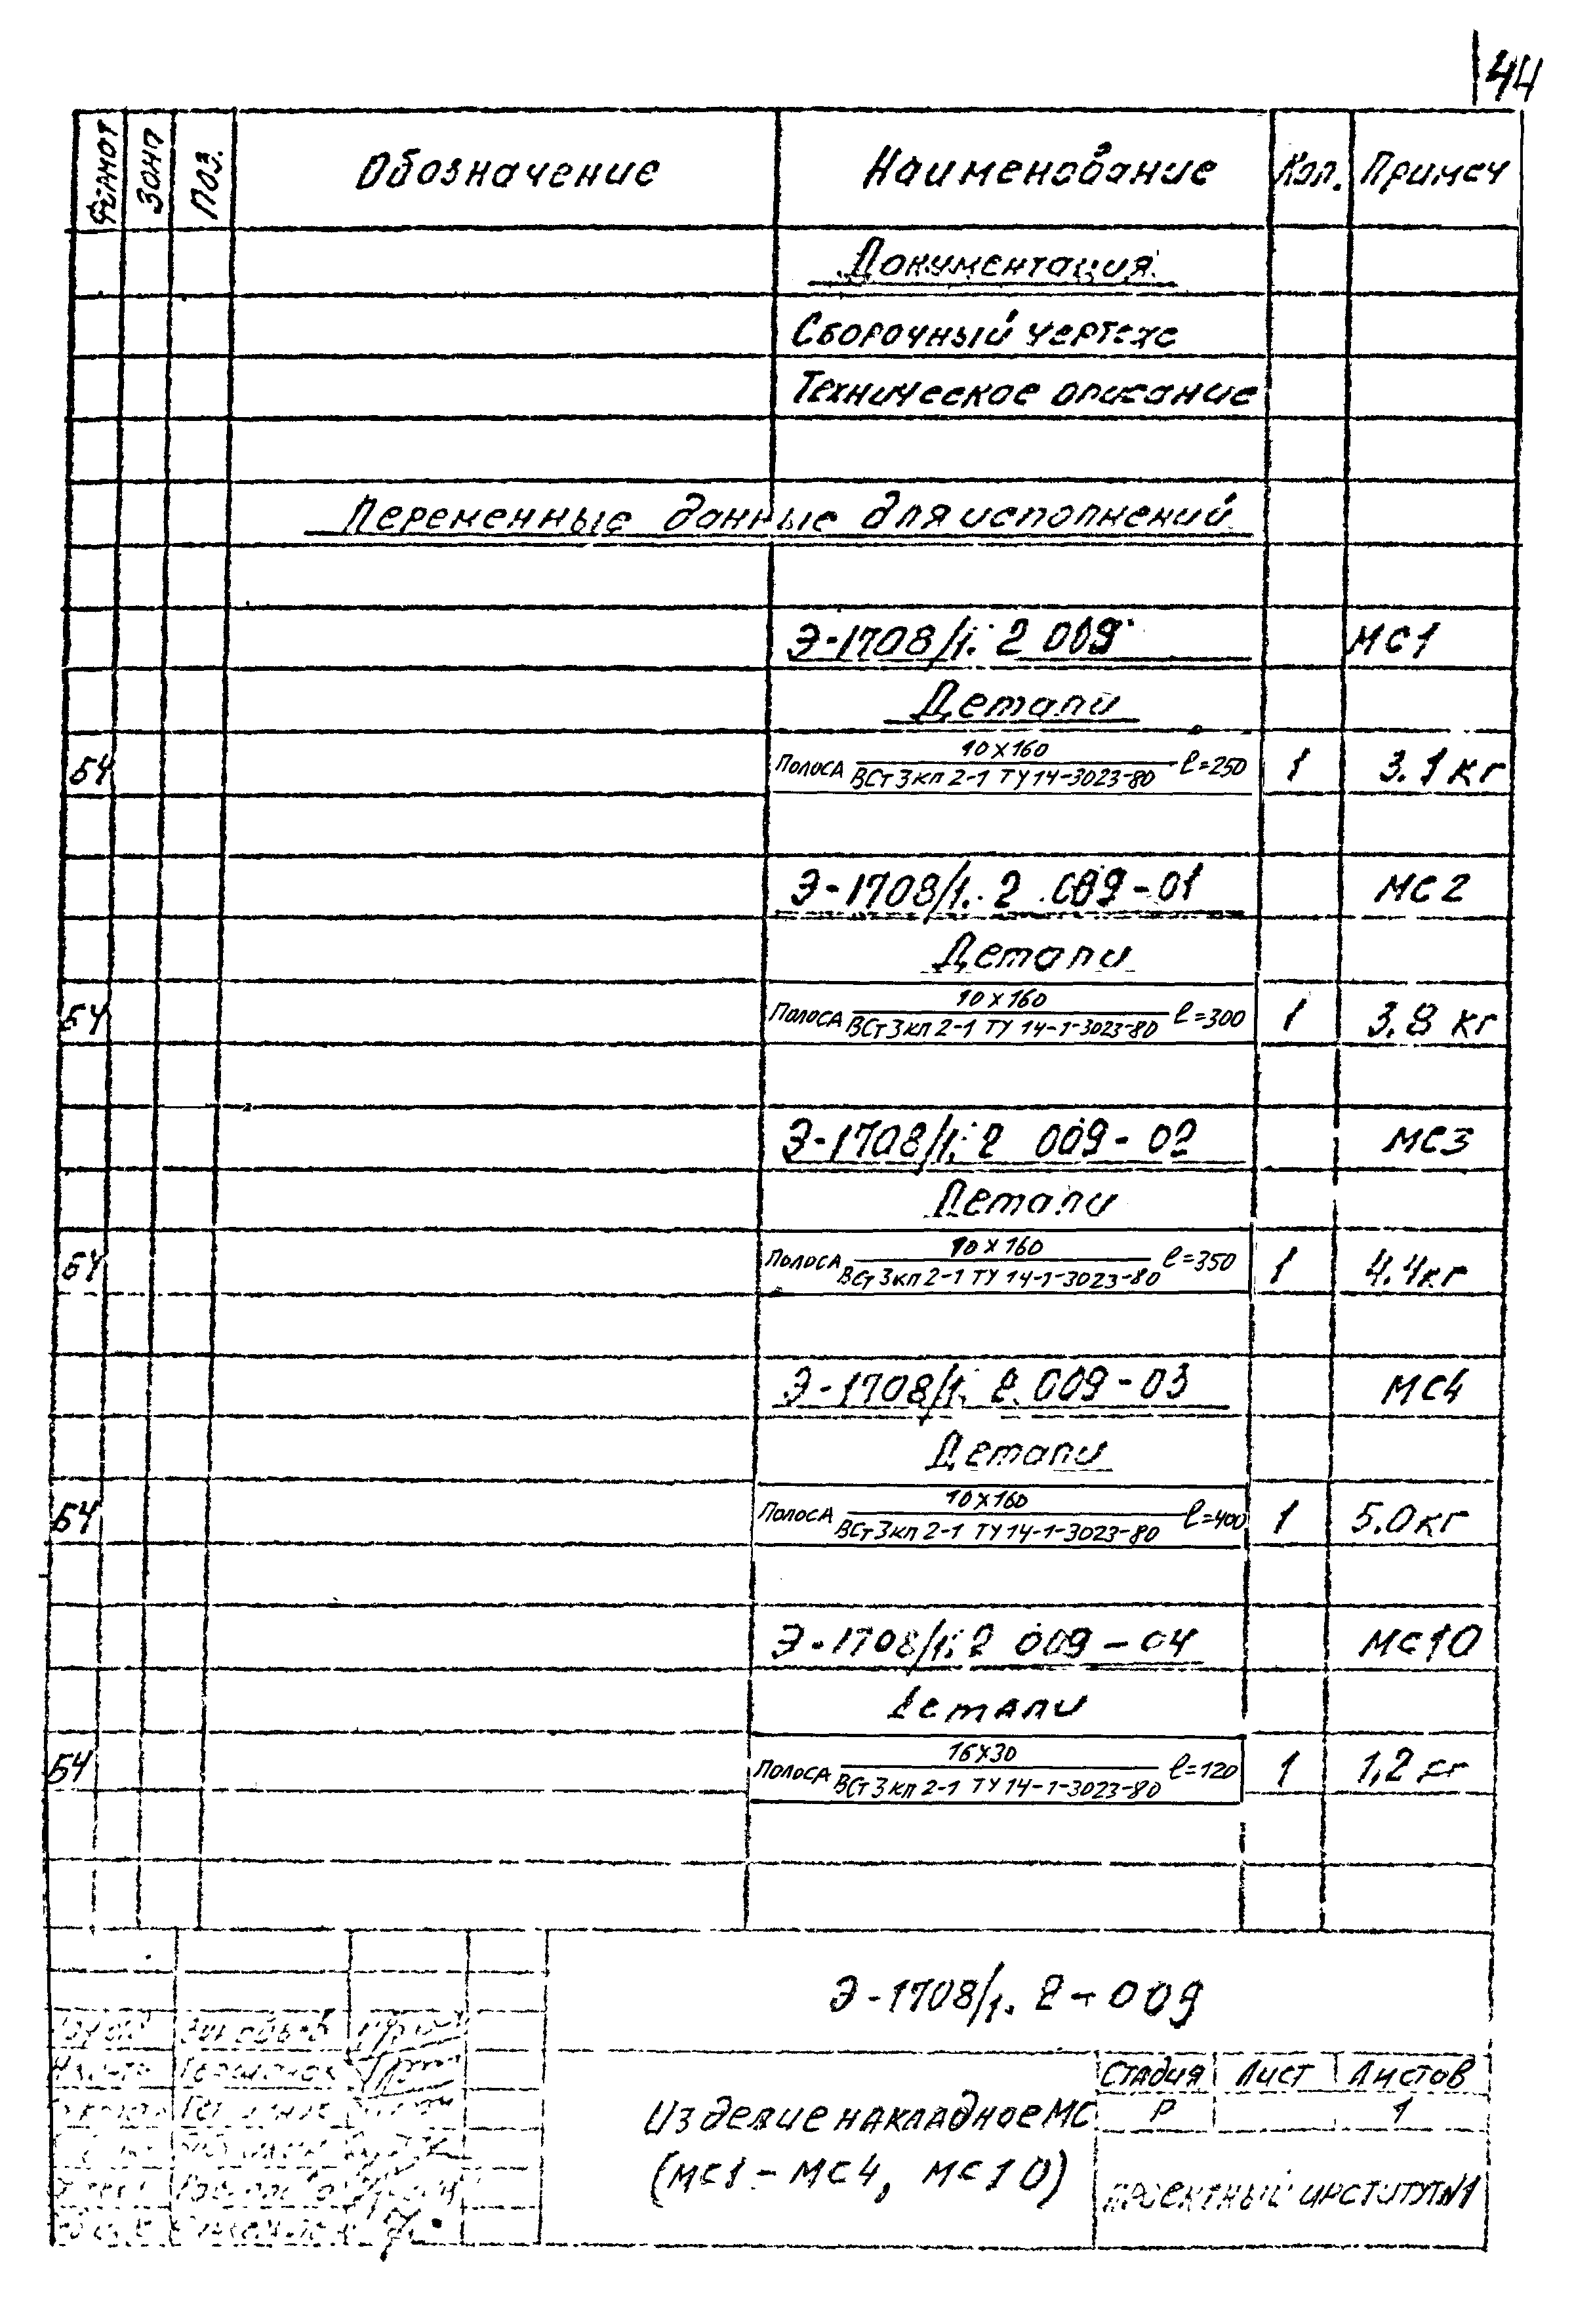 44
Формат Зона Поз. Обозначение Наименование Кол. Примеч
Документация
Сборочный чертеже
Техническое описание
Переменные данные для исполнений
Э-1708/1. 2 009 МС1
Детали
БЧ Полоса 10х160 / ВСт3кп2-1 ТУ14-3023-80 ℓ=250 1 3.1кг
Э-1708/1. 2 009-01 МС2
Детали
БЧ Полоса 10х160 / ВСт3кп2-1 ТУ 14-1-3023-80 ℓ=300 1 3.8 кг
Э-1708/1. 2 009-02 МС3
Детали
БЧ Полоса 10х160 / ВСт3кп2-1 ТУ 14-1-3023-80 ℓ=350 1 4.4кг
Э-1708/1. 2.009-03 МС4
Детали
БЧ Полоса 10х160 / ВСт3кп2-1 ТУ14-1-3023-80 ℓ=400 1 5.0кг
Э-1708/1. 2 009-04 МС10
Детали
БЧ Полоса 16х30 / ВСт3кп2-1 ТУ14-1-3023-80 ℓ=120 1 1,2 кг
Э-1708/1. 2-009
Изделие накладное МС
(МС1-МС4, МС10)
Стадия Лист Листов
Р 1
Проектный институт №1